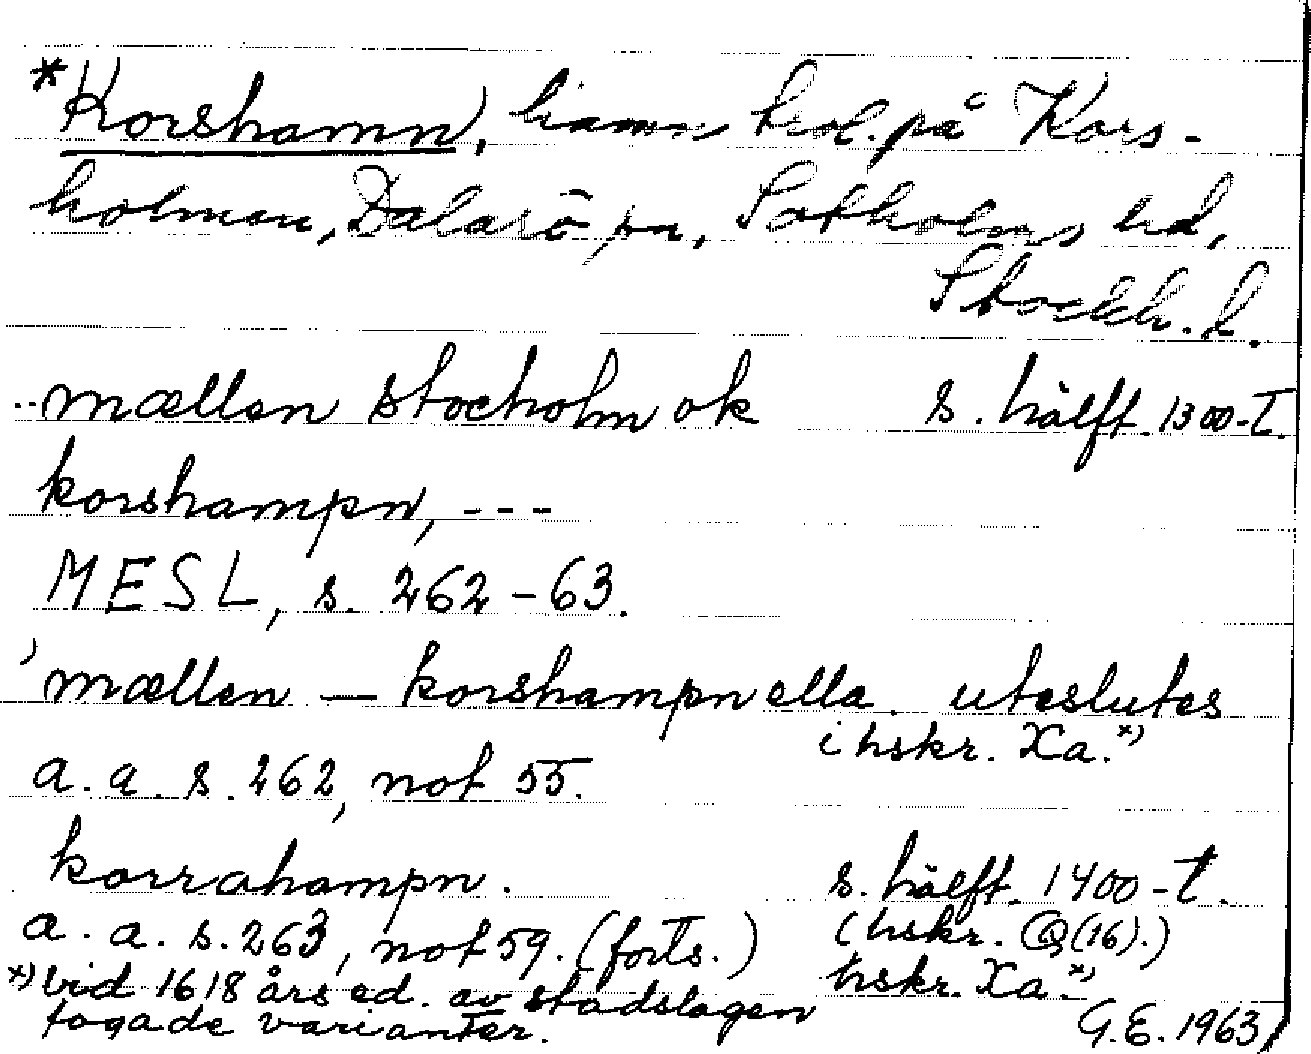 *Korshamn, hamn trol. på Kors-
holmen, Dalarö sn, Sotholms hd,
Stockh. l.
..mællen stocholm ok s. hälft. 1300-t.
korshampn, ---
MESL, s. 262-63.
'mællen — korshampn ella. uteslutes
i hskr. Xa.*)
a. a. s. 262, not 55.
korrahampn. s. hälft. 1400-t.
a. a. s. 263, not 59. (forts.) (hskr. Q(16).)
hskr. Xa.*)
*) vid 1618 års ed. av stadslagen
fogade varianter. G.E. 1963